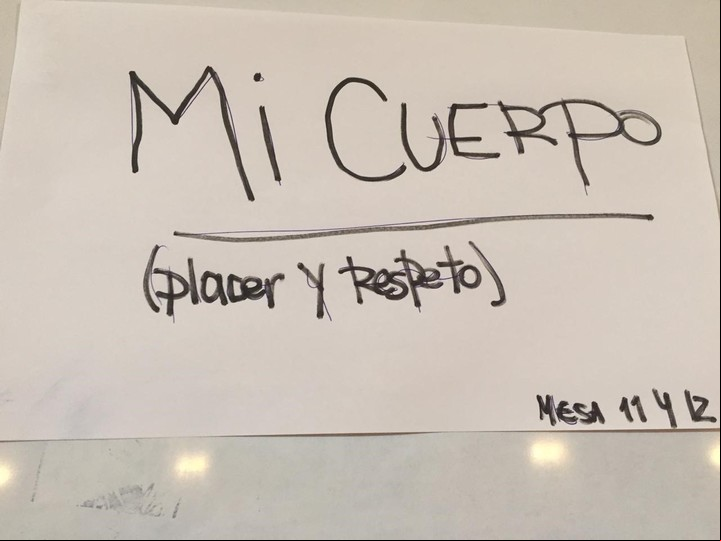 Mi CUERPO
(placer y Respeto)
MESA 11 y 12